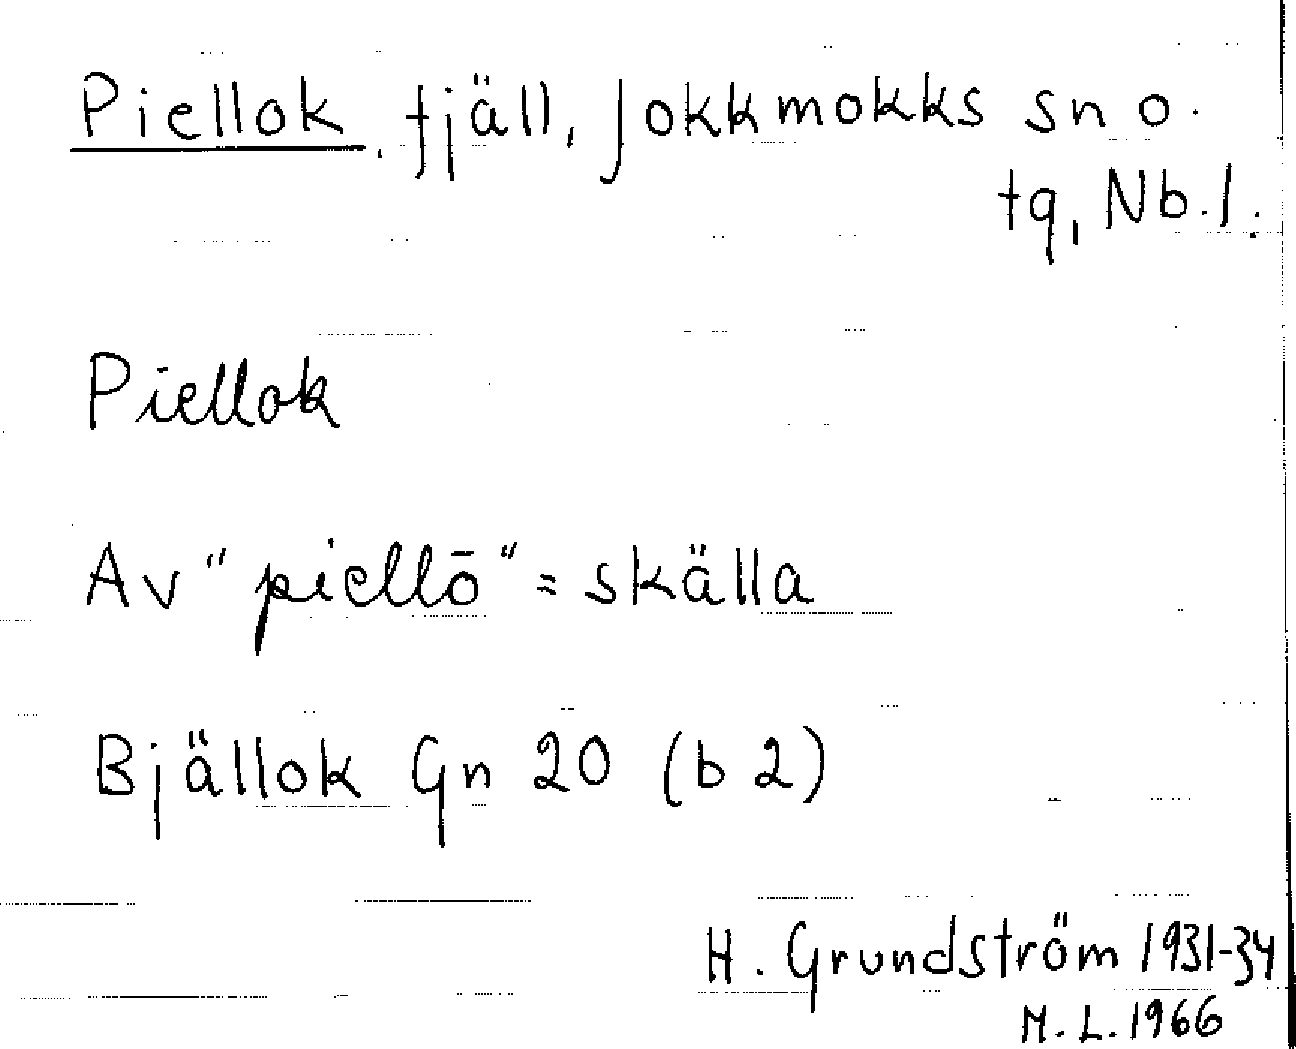 Piellok, fjäll, Jokkmokks sn o.
tg, Nb.l.
Piellok
Av "piellō" = skälla
Bjällok Gn 20 (b 2)
H. Grundström 1931-34
M.L. 1966